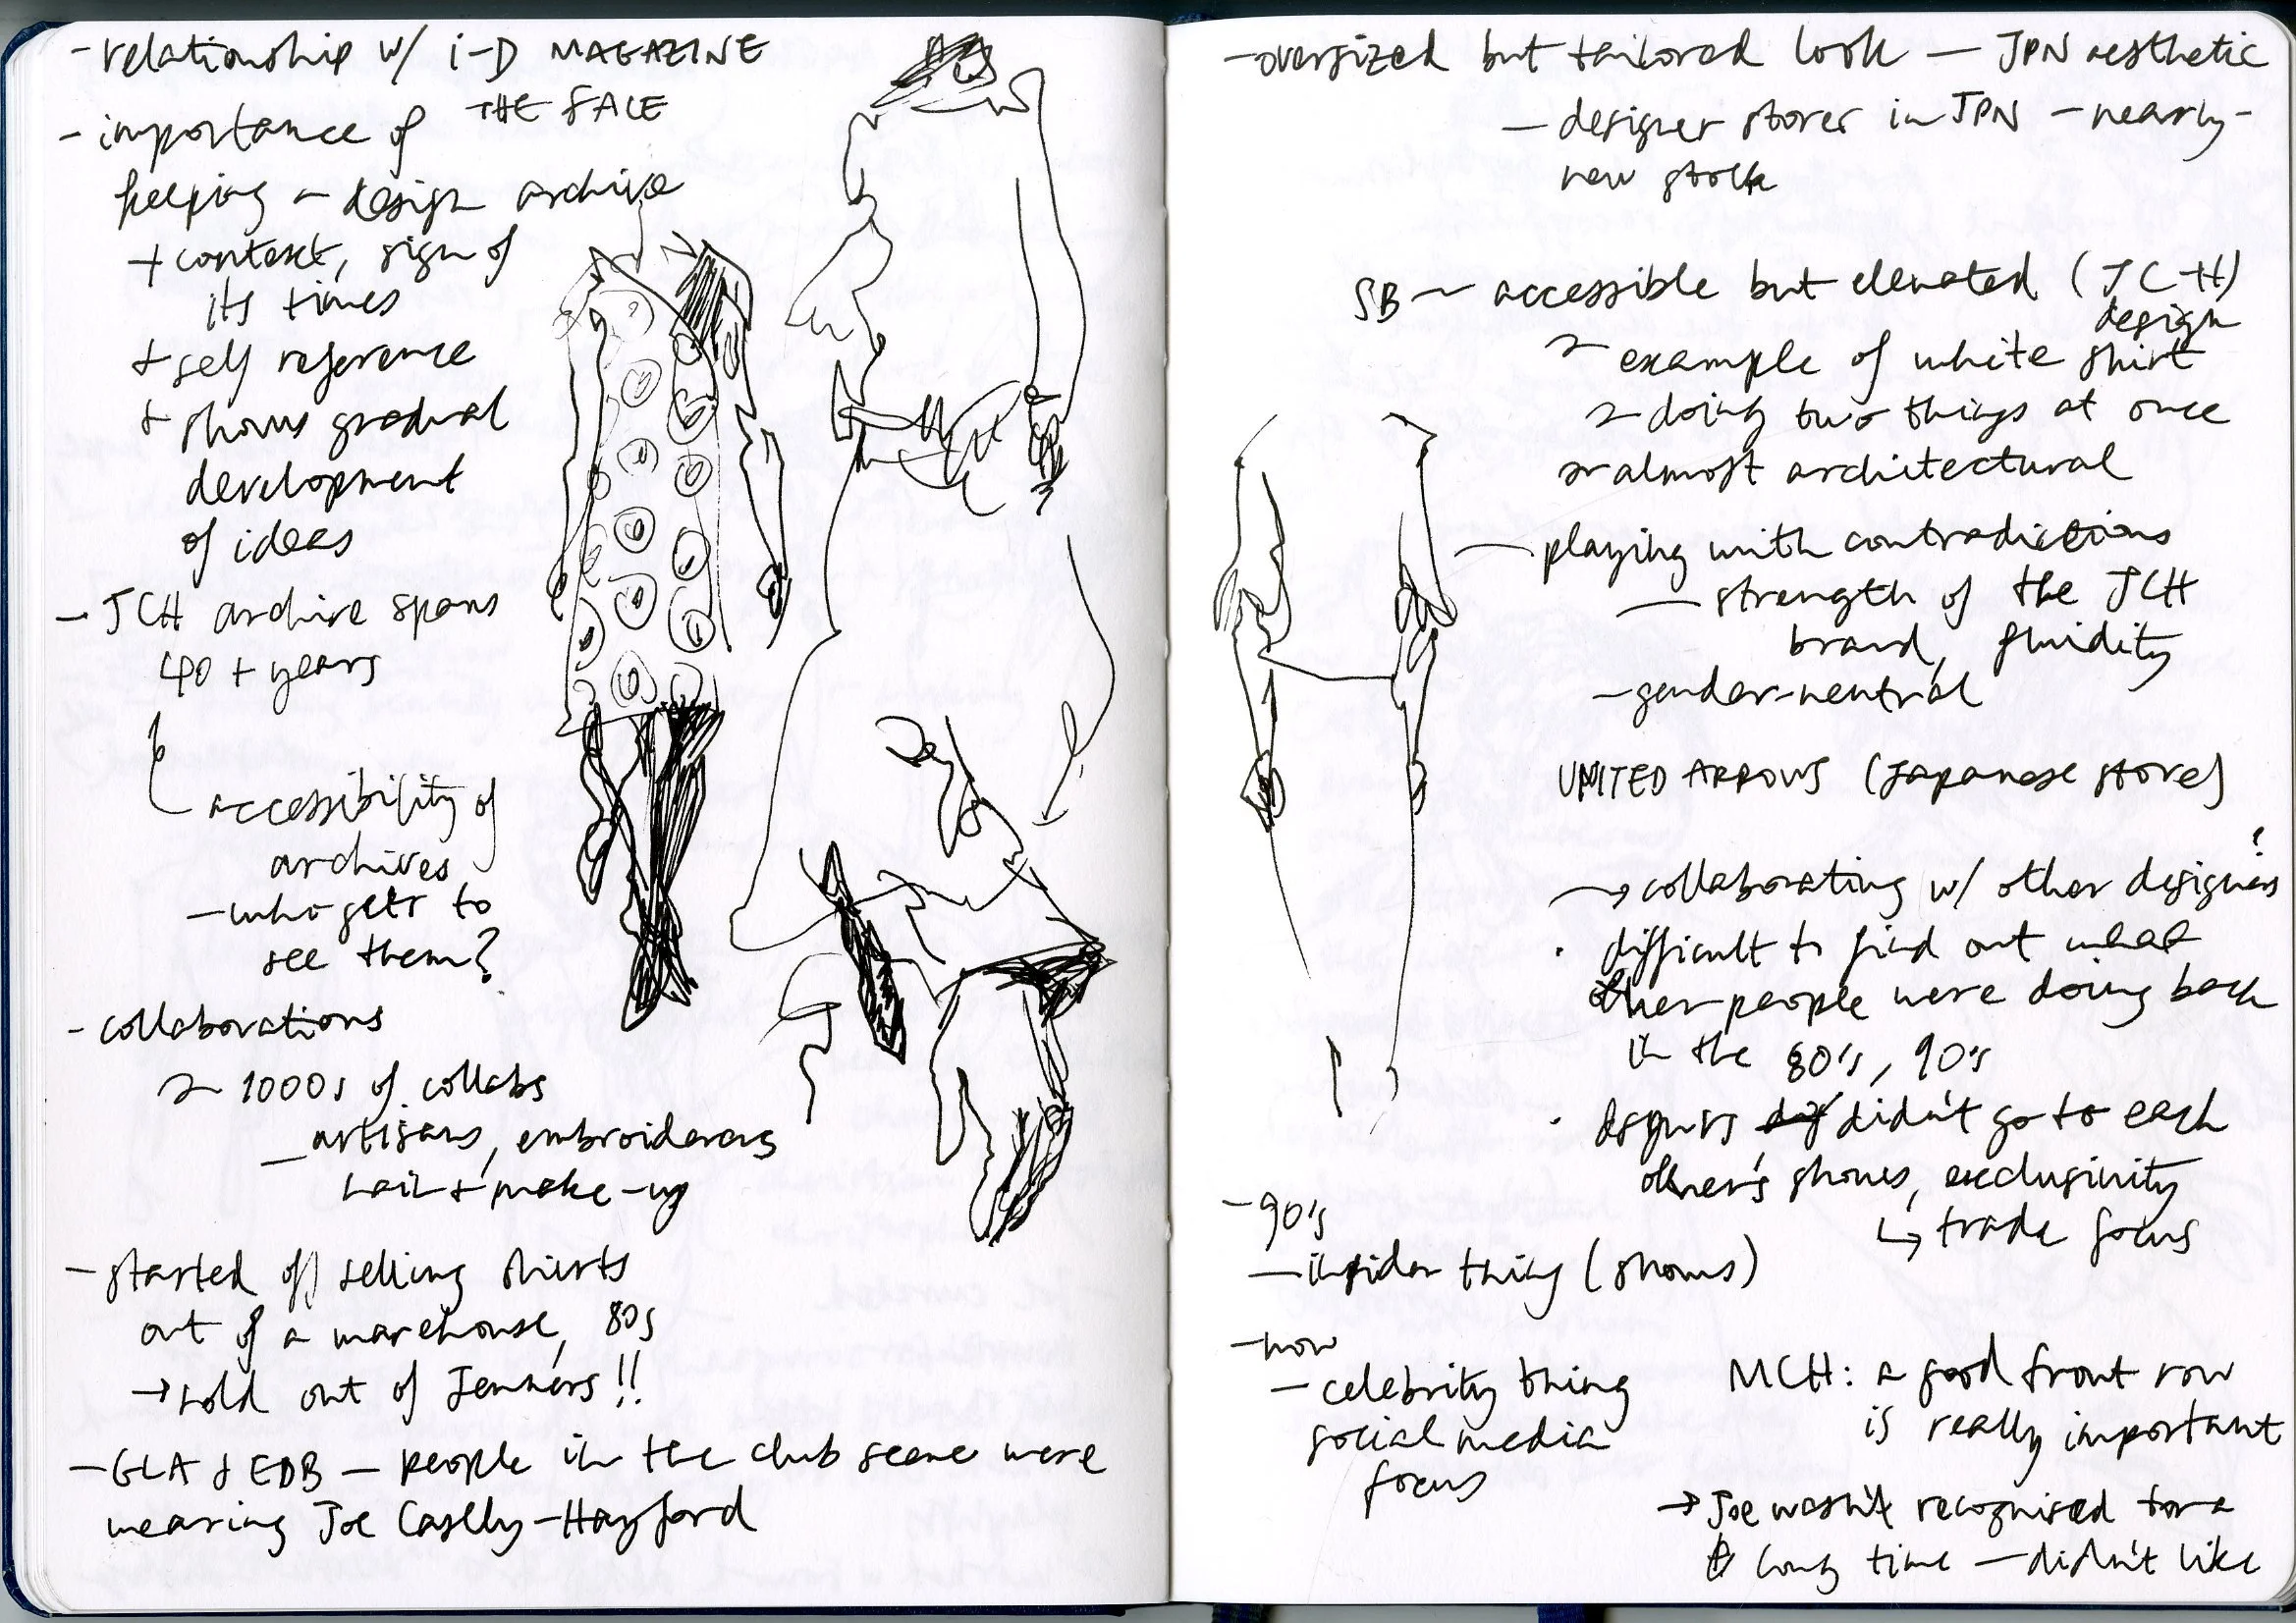 - relationship w/ i-D MAGAZINE
THE FACE
- importance of
keeping a design archive
+ context, sign of
its times
+ self reference
+ shows gradual
development
of ideas
- JCH archive spans
40 + years
accessibility of
archives
- who gets to
see them?
- collaborations
~ 1000s of collabs
- artisans, embroiderers
hair + make-up
- started off selling shirts
out of a warehouse, 80s
→ sold out of Jenners!!
- GLA + EDB - people in the club scene were
wearing Joe Casely-Hayford
- oversized but tailored look - JPN aesthetic
- designer stores in JPN - nearly-
new stock
SB ~ accessible but elevated (JC-H)
design
~ example of white shirt
~ doing two things at once
~ almost architectural
- playing with contradictions
- strength of the JCH
brand, fluidity
- gender-neutral
UNITED ARROWS (Japanese store)
→ collaborating w/ other designers?
· difficult to find out what
other people were doing back
in the 80's, 90's
· designers didn't go to each
other's shows, exclusivity
↳ trade focus
- 90's
- insider thing (shows)
- now
- celebrity thing
social media
focus
MCH: a good front row
is really important
→ Joe wasn't recognised for a
long time - didn't like